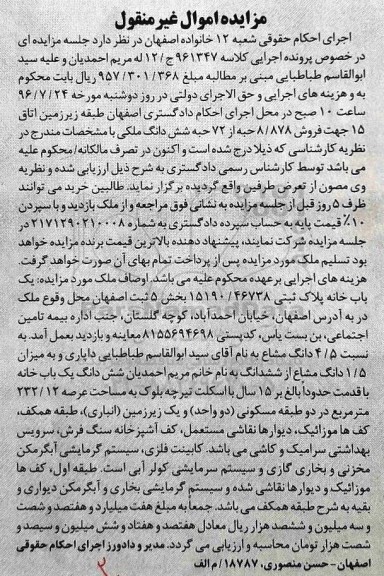 مزایده اموال غیر منقول
اجرای احکام حقوقی شعبه ۱۲ خانواده اصفهان در نظر دارد جلسه مزایده ای
در خصوص پرونده اجرایی کلاسه ۹۶۱۳۴۷ ج/۱۲ له مریم احمدیان و علیه سید
ابوالقاسم طباطبایی مبنی بر مطالبه مبلغ ۹۵۷/۳۰۱/۳۶۸ ریال بابت محکوم
به و هزینه های اجرایی و حق الاجرای دولتی در روز دوشنبه مورخه ۹۶/۷/۲۴
ساعت ۱۰ صبح در محل اجرای احکام دادگستری اصفهان طبقه زیرزمین اتاق
۱۵ جهت فروش ۸/۸۷۸ حبه از ۷۲ حبه شش دانگ ملکی با مشخصات مندرج در
نظریه کارشناسی که ذیلا درج شده است و اکنون در تصرف مالکانه/محکوم علیه
می باشد توسط کارشناس رسمی دادگستری به شرح ذیل ارزیابی شده و نظریه
وی مصون از تعرض طرفین واقع گردیده برگزار نماید. طالبین خرید می توانند
ظرف ۵ روز قبل از جلسه مزایده به نشانی فوق مراجعه و از ملک بازدید و با سپردن
۱۰٪ قیمت پایه به حساب سپرده دادگستری به شماره ۲۱۷۱۲۹۰۲۱۰۰۰۸ در
جلسه مزایده شرکت نمایند، پیشنهاد دهنده بالاترین قیمت برنده مزایده خواهد
بود تسلیم ملک مورد مزایده پس از پرداخت تمام بهای آن صورت خواهد گرفت.
هزینه های اجرایی بر عهده محکوم علیه می باشد. اوصاف ملک مورد مزایده: یک
باب خانه پلاک ثبتی ۱۵۱۹۰/۴۶۷۳۸ بخش ۵ ثبت اصفهان محل وقوع ملک
در به آدرس اصفهان، خیابان احمدآباد، کوچه گلستان، جنب اداره بیمه تامین
اجتماعی، بن بست یاس، کدپستی ۸۱۵۵۶۹۴۶۹۸ معاینه و بازدید بعمل آمد. به
نسبت ۴/۵ دانگ مشاع به نام آقای سید ابوالقاسم طباطبایی داپاری و به میزان
۱/۵ دانگ مشاع از ششدانگ به نام خانم مریم احمدیان شش دانگ یک باب خانه
با قدمت حدودا بالغ بر ۱۵ سال با اسکلت تیرچه بلوک به مساحت عرصه ۲۳۲/۱۲
مترمربع در دو طبقه مسکونی (دو واحد) و یک زیرزمین (انباری)، طبقه همکف،
کف ها موزائیک، دیوارها نقاشی مستعمل، کف آشپزخانه سنگ فرش، سرویس
بهداشتی سرامیک و کاشی می باشد. کابینت فلزی، سیستم گرمایشی آبگرمکن
مخزنی و بخاری گازی و سیستم سرمایشی کولر آبی است. طبقه اول، کف ها
موزائیک و دیوارها نقاشی شده و سیستم گرمایشی بخاری و آبگرمکن دیواری و
بقیه به شرح طبقه همکف می باشد. جمعا به مبلغ هفت میلیارد و هفتصد و شصت
و سه میلیون و ششصد هزار ریال معادل هفتصد و هفتاد و شش میلیون و سیصد و
شصت هزار تومان محاسبه و ارزیابی می گردد. مدیر و دادورز اجرای احکام حقوقی
اصفهان - حسن منصوری. ۱۸۷۸۷/ م الف
۲